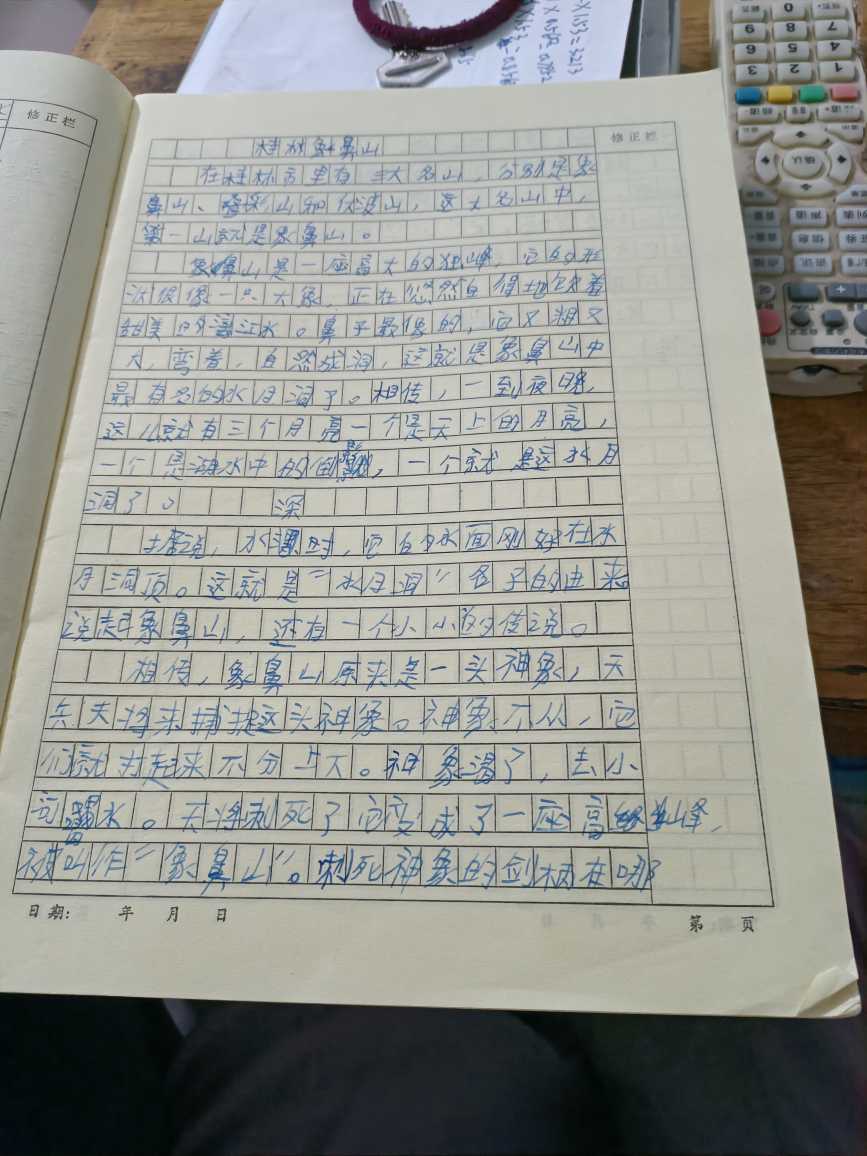 修正栏
修正栏
桂林象鼻山
在桂林市里有三大名山，分别是象
鼻山、叠彩山和伏波山，这大名山中，
第一山就是象鼻山。
象鼻山是一座高大的独峰，它的形
状很像一只大象，正在悠然自得地饮着
甜美的漓江水。鼻子最像的，它又粗又
大，弯着，自然成洞，这就是象鼻山中
最有名的水月洞了。相传，一到夜晚，
这儿就有三个月亮一个是天上的月亮，
一个是湖水中的倒影，一个就是这水月
洞了。
据说，水深时，它的水面刚好在水
月洞顶。这就是“水月洞”名子的由来
说起象鼻山，还有一个小小的传说。
相传，象鼻山原来是一头神象，天
兵天将来捕捉这头神象。神象不从，它
们就打起来不分上下。神象渴了，去小
河喝水。天将刺死了它变成了一座高山峰，
被叫作“象鼻山”。刺死神象的剑柄在哪
日期： 年 月 日
第 页